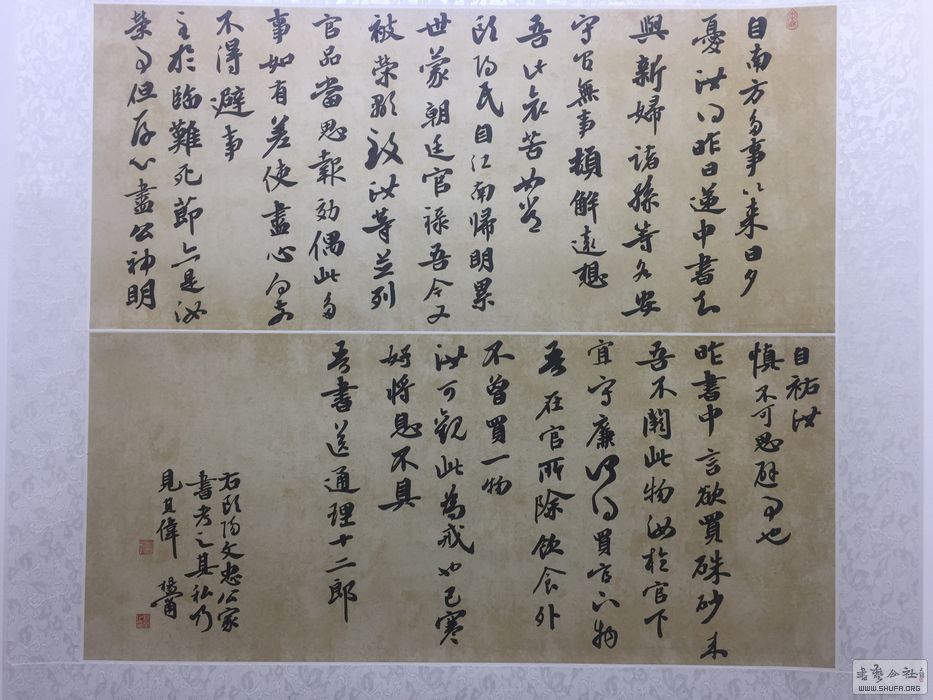 自南方多事以來日夕
憂汝得昨日遞中書知
與新婦諸孫等各安
守官無事頓解遠想
吾此哀苦如常
歐陽氏自江南帰明累
世蒙朝廷官祿吾今又
被榮顯致汝等並列
官品當思報効偶此多
事如有差使盡心向前
不得避事
至於臨難死節亦是汝
榮事但存心盡公神明
自祐汝
慎不可思避事也
昨書中言欲買硃砂來
吾不闕此物汝於官下
宜守廉何得買官下物
吾在官所除飲食外
不曾買一物
汝可觀此為戒也已寒
好將息不具
吾書送通理十二郎
右歐陽文忠公家
書考之其私乃
見其偉
WWW.SHUFA.ORG